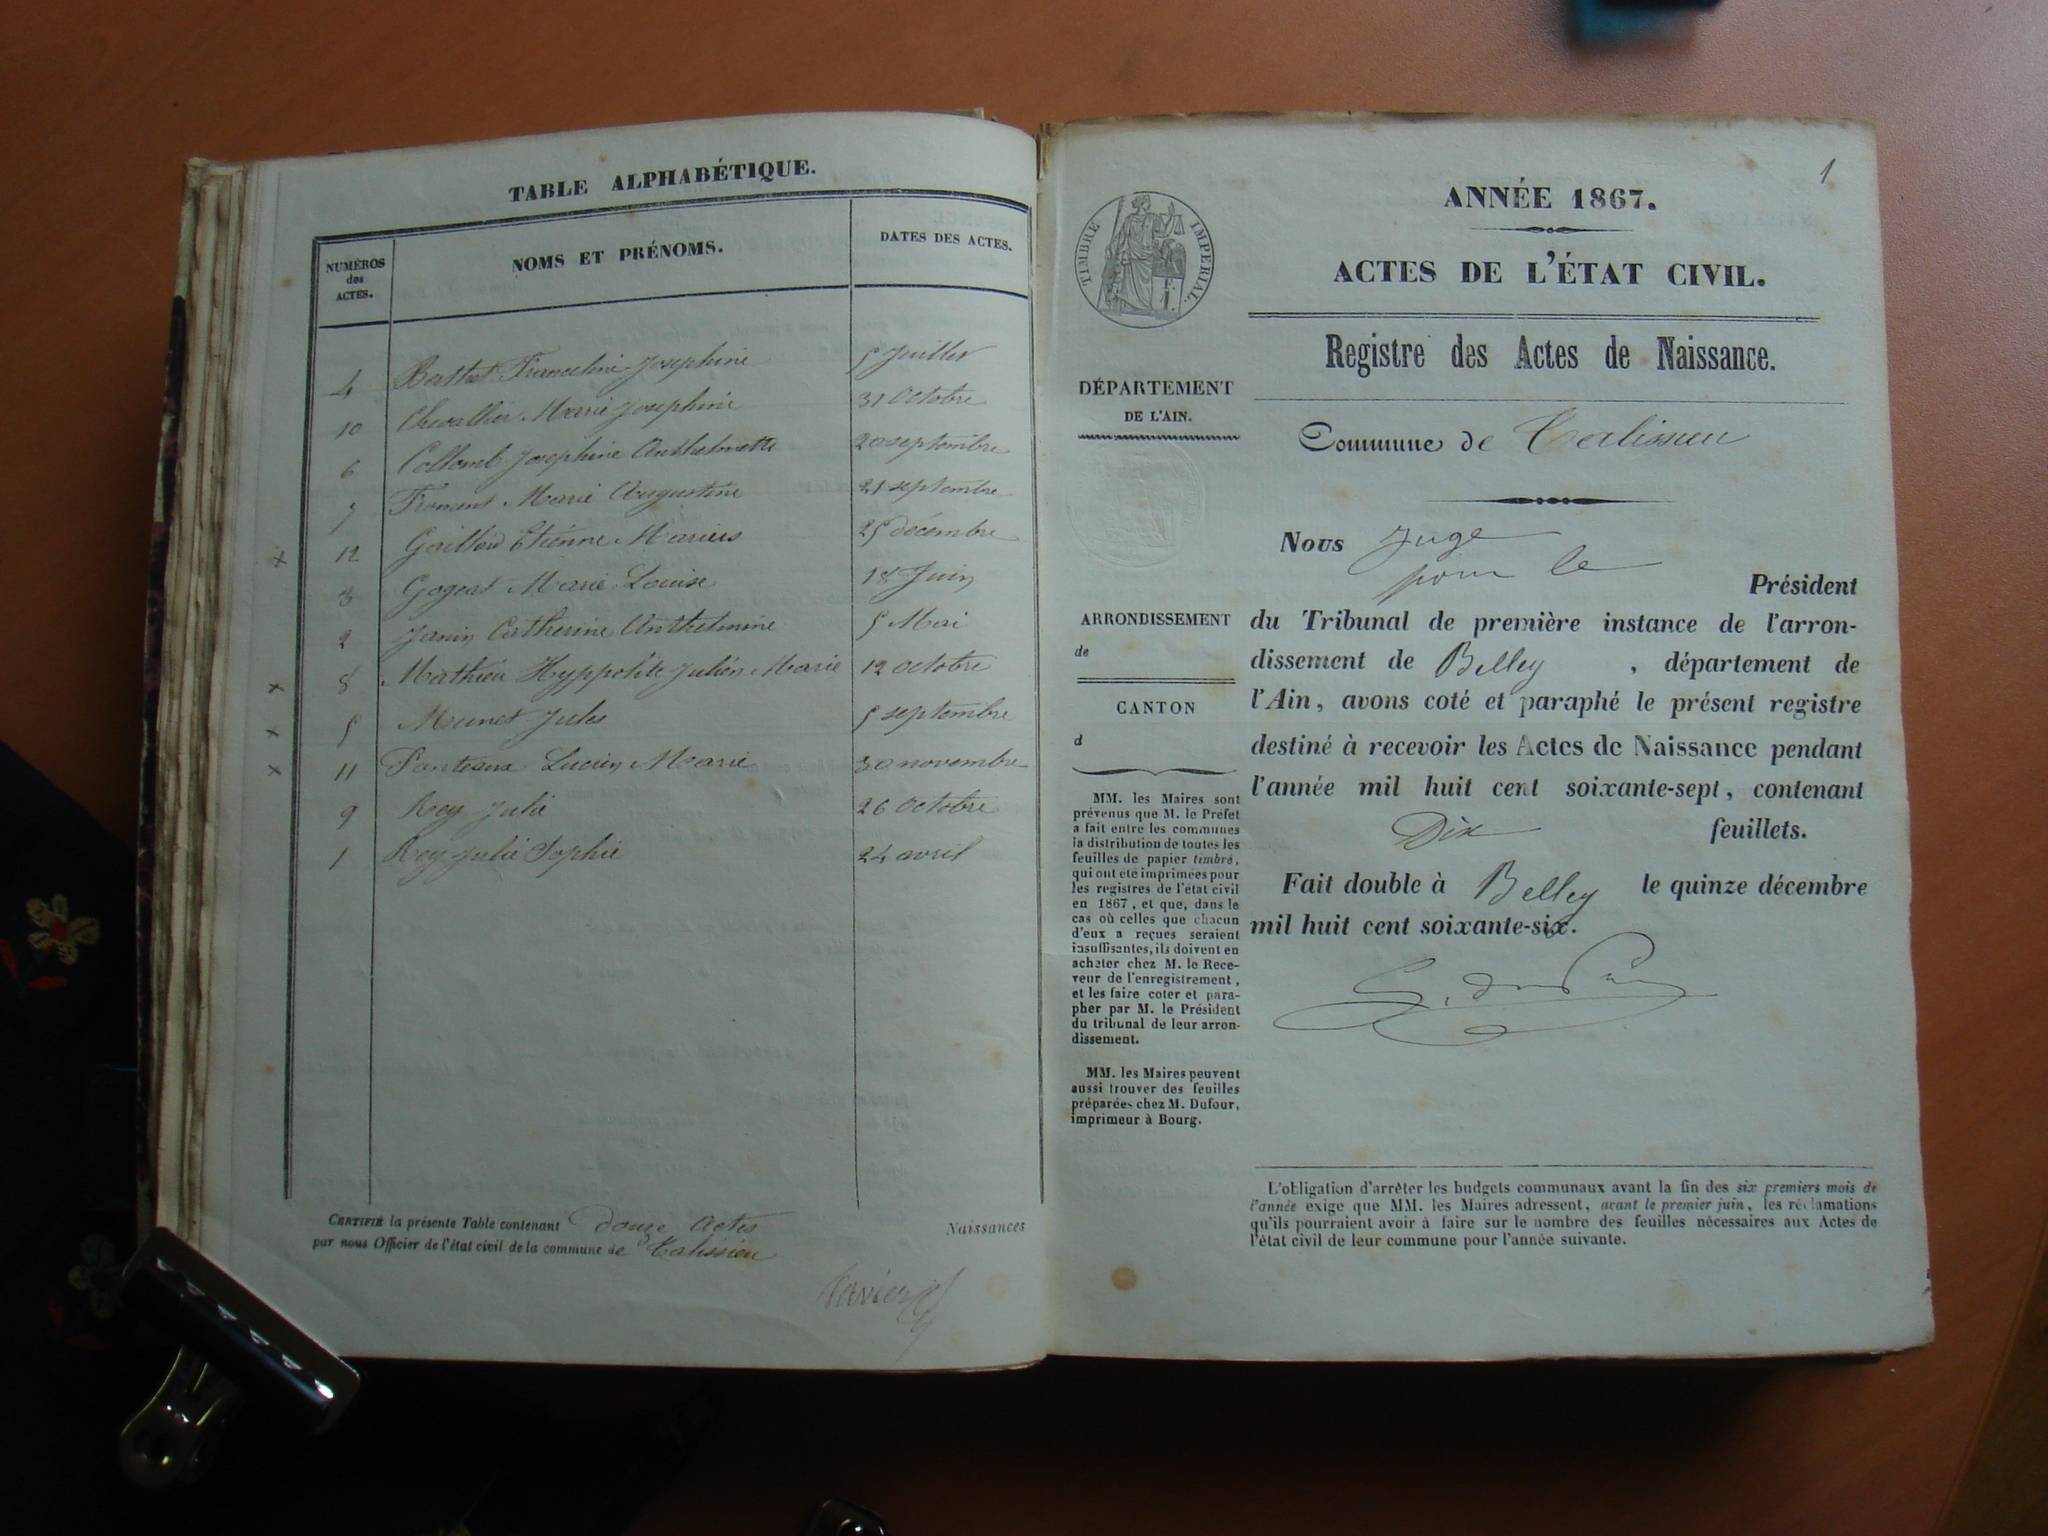 TABLE ALPHABÉTIQUE.
NUMÉROS
des
ACTES.
NOMS ET PRÉNOMS.
DATES DES ACTES.
4 Berthet Franceline Josephine 5 Juillet
10 Chevallier Marie Josephine 31 Octobre
6 Collomb Josephine Anthelmette 20 septembre
7 Marie Augustine 21 septembre
x 12 Etienne Marius 25 décembre
3 Gogeat Marie Louise 18 Juin
2 Janin Catherine Anthelmine 5 Mai
x 8 Mathieu Hyppolite Julien Marie 12 octobre
x 5 Munet Jules 5 septembre
x 11 Ponteaux Lucien Marie 30 novembre
9 Rey Julie 26 Octobre
1 Rey Julie Sophie 24 avril
CERTIFIÉ la présente Table contenant douze Actes Naissances
par nous Officier de l'état civil de la commune de Talissieu
1
ANNÉE 1867.
TIMBRE IMPÉRIAL.
ACTES DE L'ÉTAT CIVIL.
Registre des Actes de Naissance.
DÉPARTEMENT
DE L'AIN.
Commune de Talissieu
Nous Juge
pour le
Président
du Tribunal de première instance de l'arron-
dissement de Belley, département de
l'Ain, avons coté et paraphé le présent registre
destiné à recevoir les Actes de Naissance pendant
l'année mil huit cent soixante-sept, contenant
Dix feuillets.
Fait double à Belley le quinze décembre
mil huit cent soixante-six.
ARRONDISSEMENT
de
CANTON
d
MM. les Maires sont
prévenus que M. le Préfet
a fait entre les communes
la distribution de toutes les
feuilles de papier timbré,
qui ont été imprimées pour
les registres de l'état civil
en 1867, et que, dans le
cas où celles que chacun
d'eux a reçues seraient
insuffisantes, ils doivent en
acheter chez M. le Rece-
veur de l'enregistrement,
et les faire coter et para-
pher par M. le Président
du tribunal de leur arron-
dissement.
MM. les Maires peuvent
aussi trouver des feuilles
préparées chez M. Dufour,
imprimeur à Bourg.
L'obligation d'arrêter les budgets communaux avant la fin des six premiers mois de
l'année exige que MM. les Maires adressent, avant le premier juin, les réclamations
qu'ils pourraient avoir à faire sur le nombre des feuilles nécessaires aux Actes de
l'état civil de leur commune pour l'année suivante.